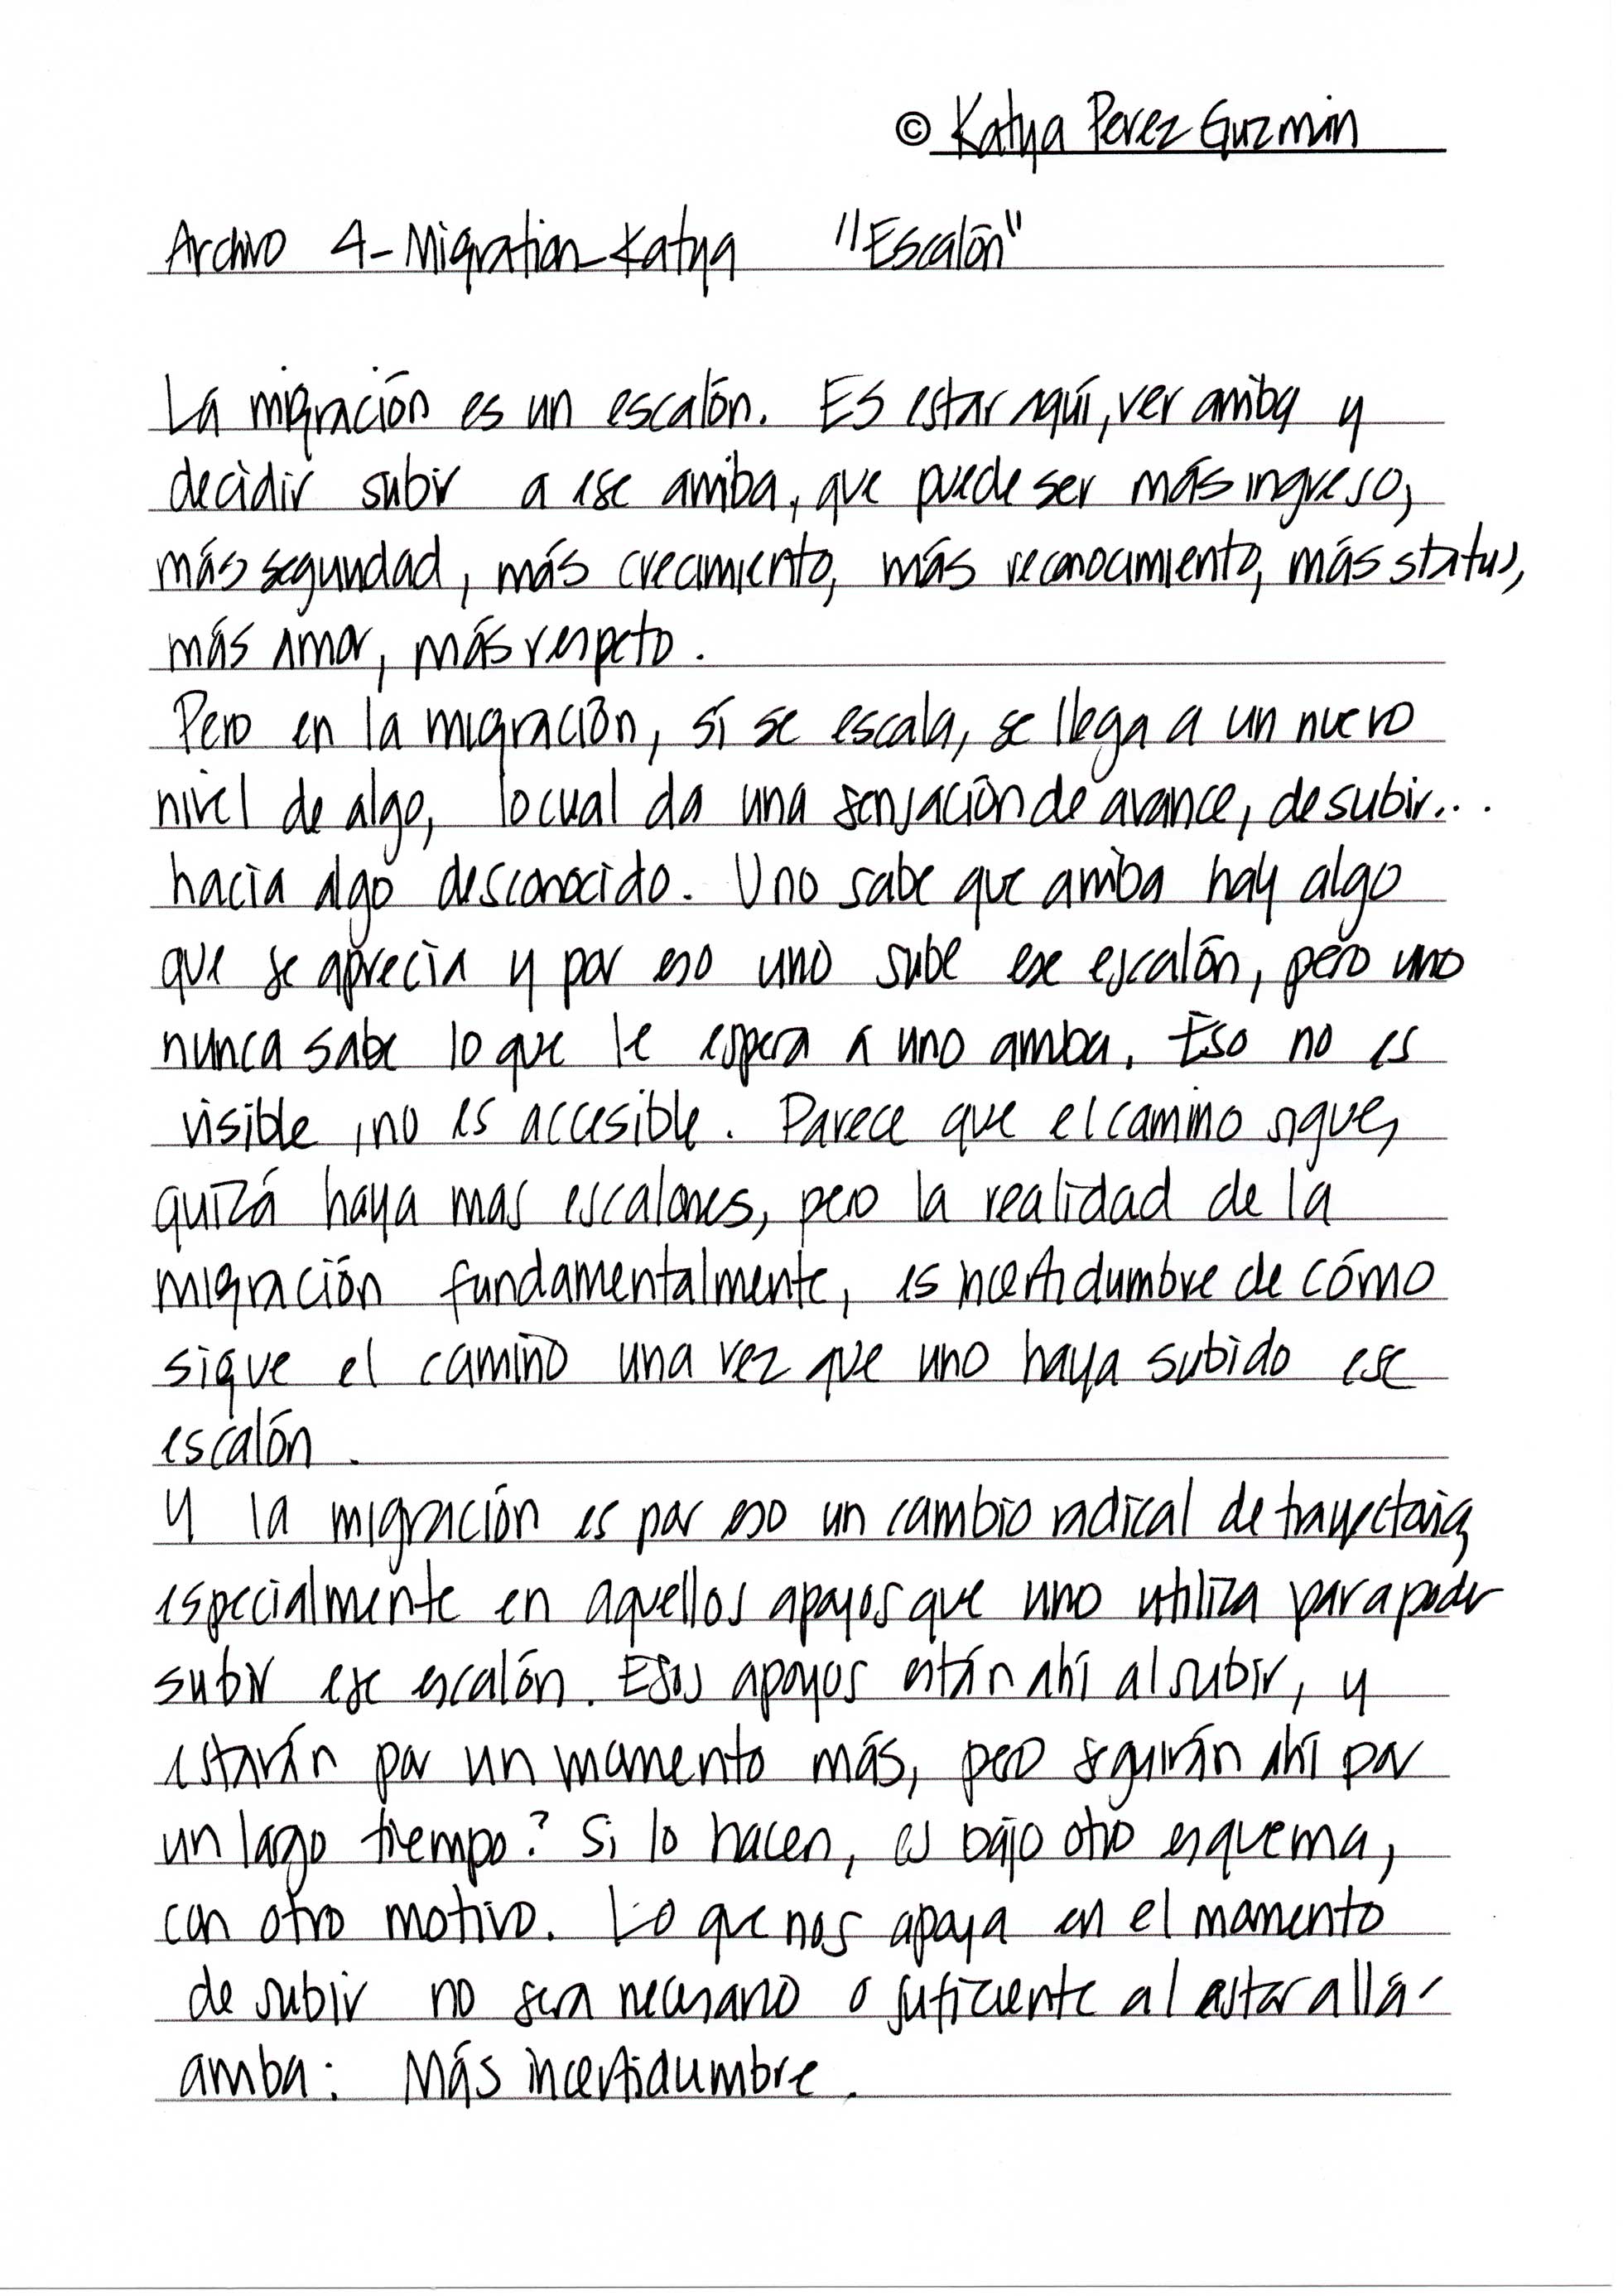 © Katya Perez Guzmán
Archivo 4-Migration-Katya "Escalón"
La migración es un escalón. Es estar aquí, ver arriba y
decidir subir a ese arriba, que puede ser más ingreso,
más seguridad, más crecimiento, más reconocimiento, más status,
más amor, más respeto.
Pero en la migración, si se escala, se llega a un nuevo
nivel de algo, lo cual da una sensación de avance, de subir...
hacia algo desconocido. Uno sabe que arriba hay algo
que se aprecia y por eso uno sube ese escalón, pero uno
nunca sabe lo que le espera a uno arriba. Eso no es
visible, no es accesible. Parece que el camino sigue,
quizá haya mas escalones, pero la realidad de la
migración fundamentalmente, es incertidumbre de cómo
sigue el camino una vez que uno haya subido ese
escalón.
Y la migración es por eso un cambio radical de trayectoria,
especialmente en aquellos apoyos que uno utiliza para poder
subir ese escalón. Esos apoyos están ahí al subir, y
estarán por un momento más, pero seguirán ahí por
un largo tiempo? Si lo hacen, es bajo otro esquema,
con otro motivo. Lo que nos apoya en el momento
de subir no sera necesario o suficiente al estar allá
arriba: Más incertidumbre.